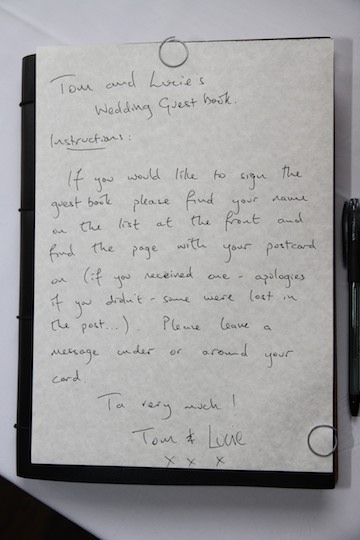 Tom and Lucie's
Wedding Guest book.
Instructions:
If you would like to sign the
guest book please find your name
on the list at the front and
find the page with your postcard
on (if you received one - apologies
if you didn't - some were lost in
the post...). Please leave a
message under or around your
card.
Ta very much!
Tom & Lucie
x x x